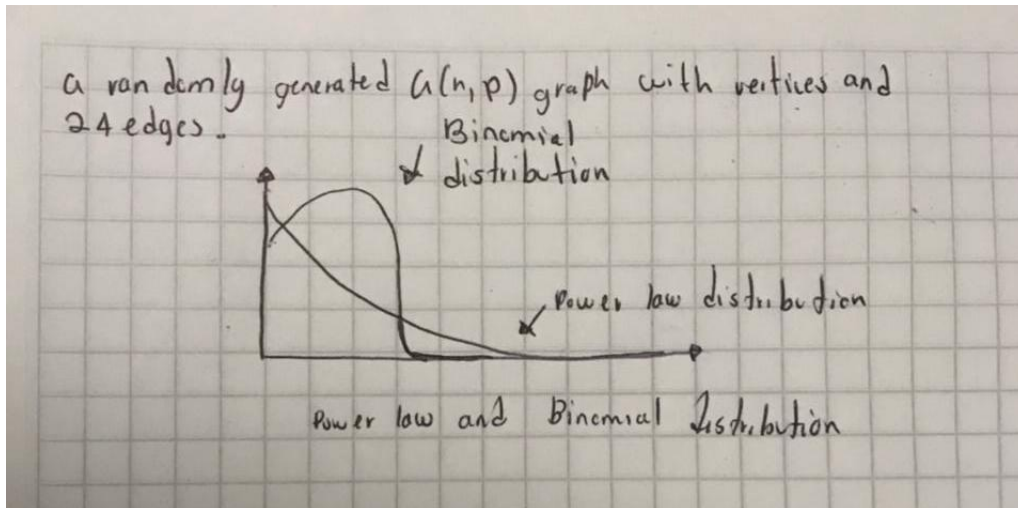 a randomly generated G(n,p) graph with vertices and
24 edges.
Binomial
distribution
Power law distribution
Power law and Binomial Distribution